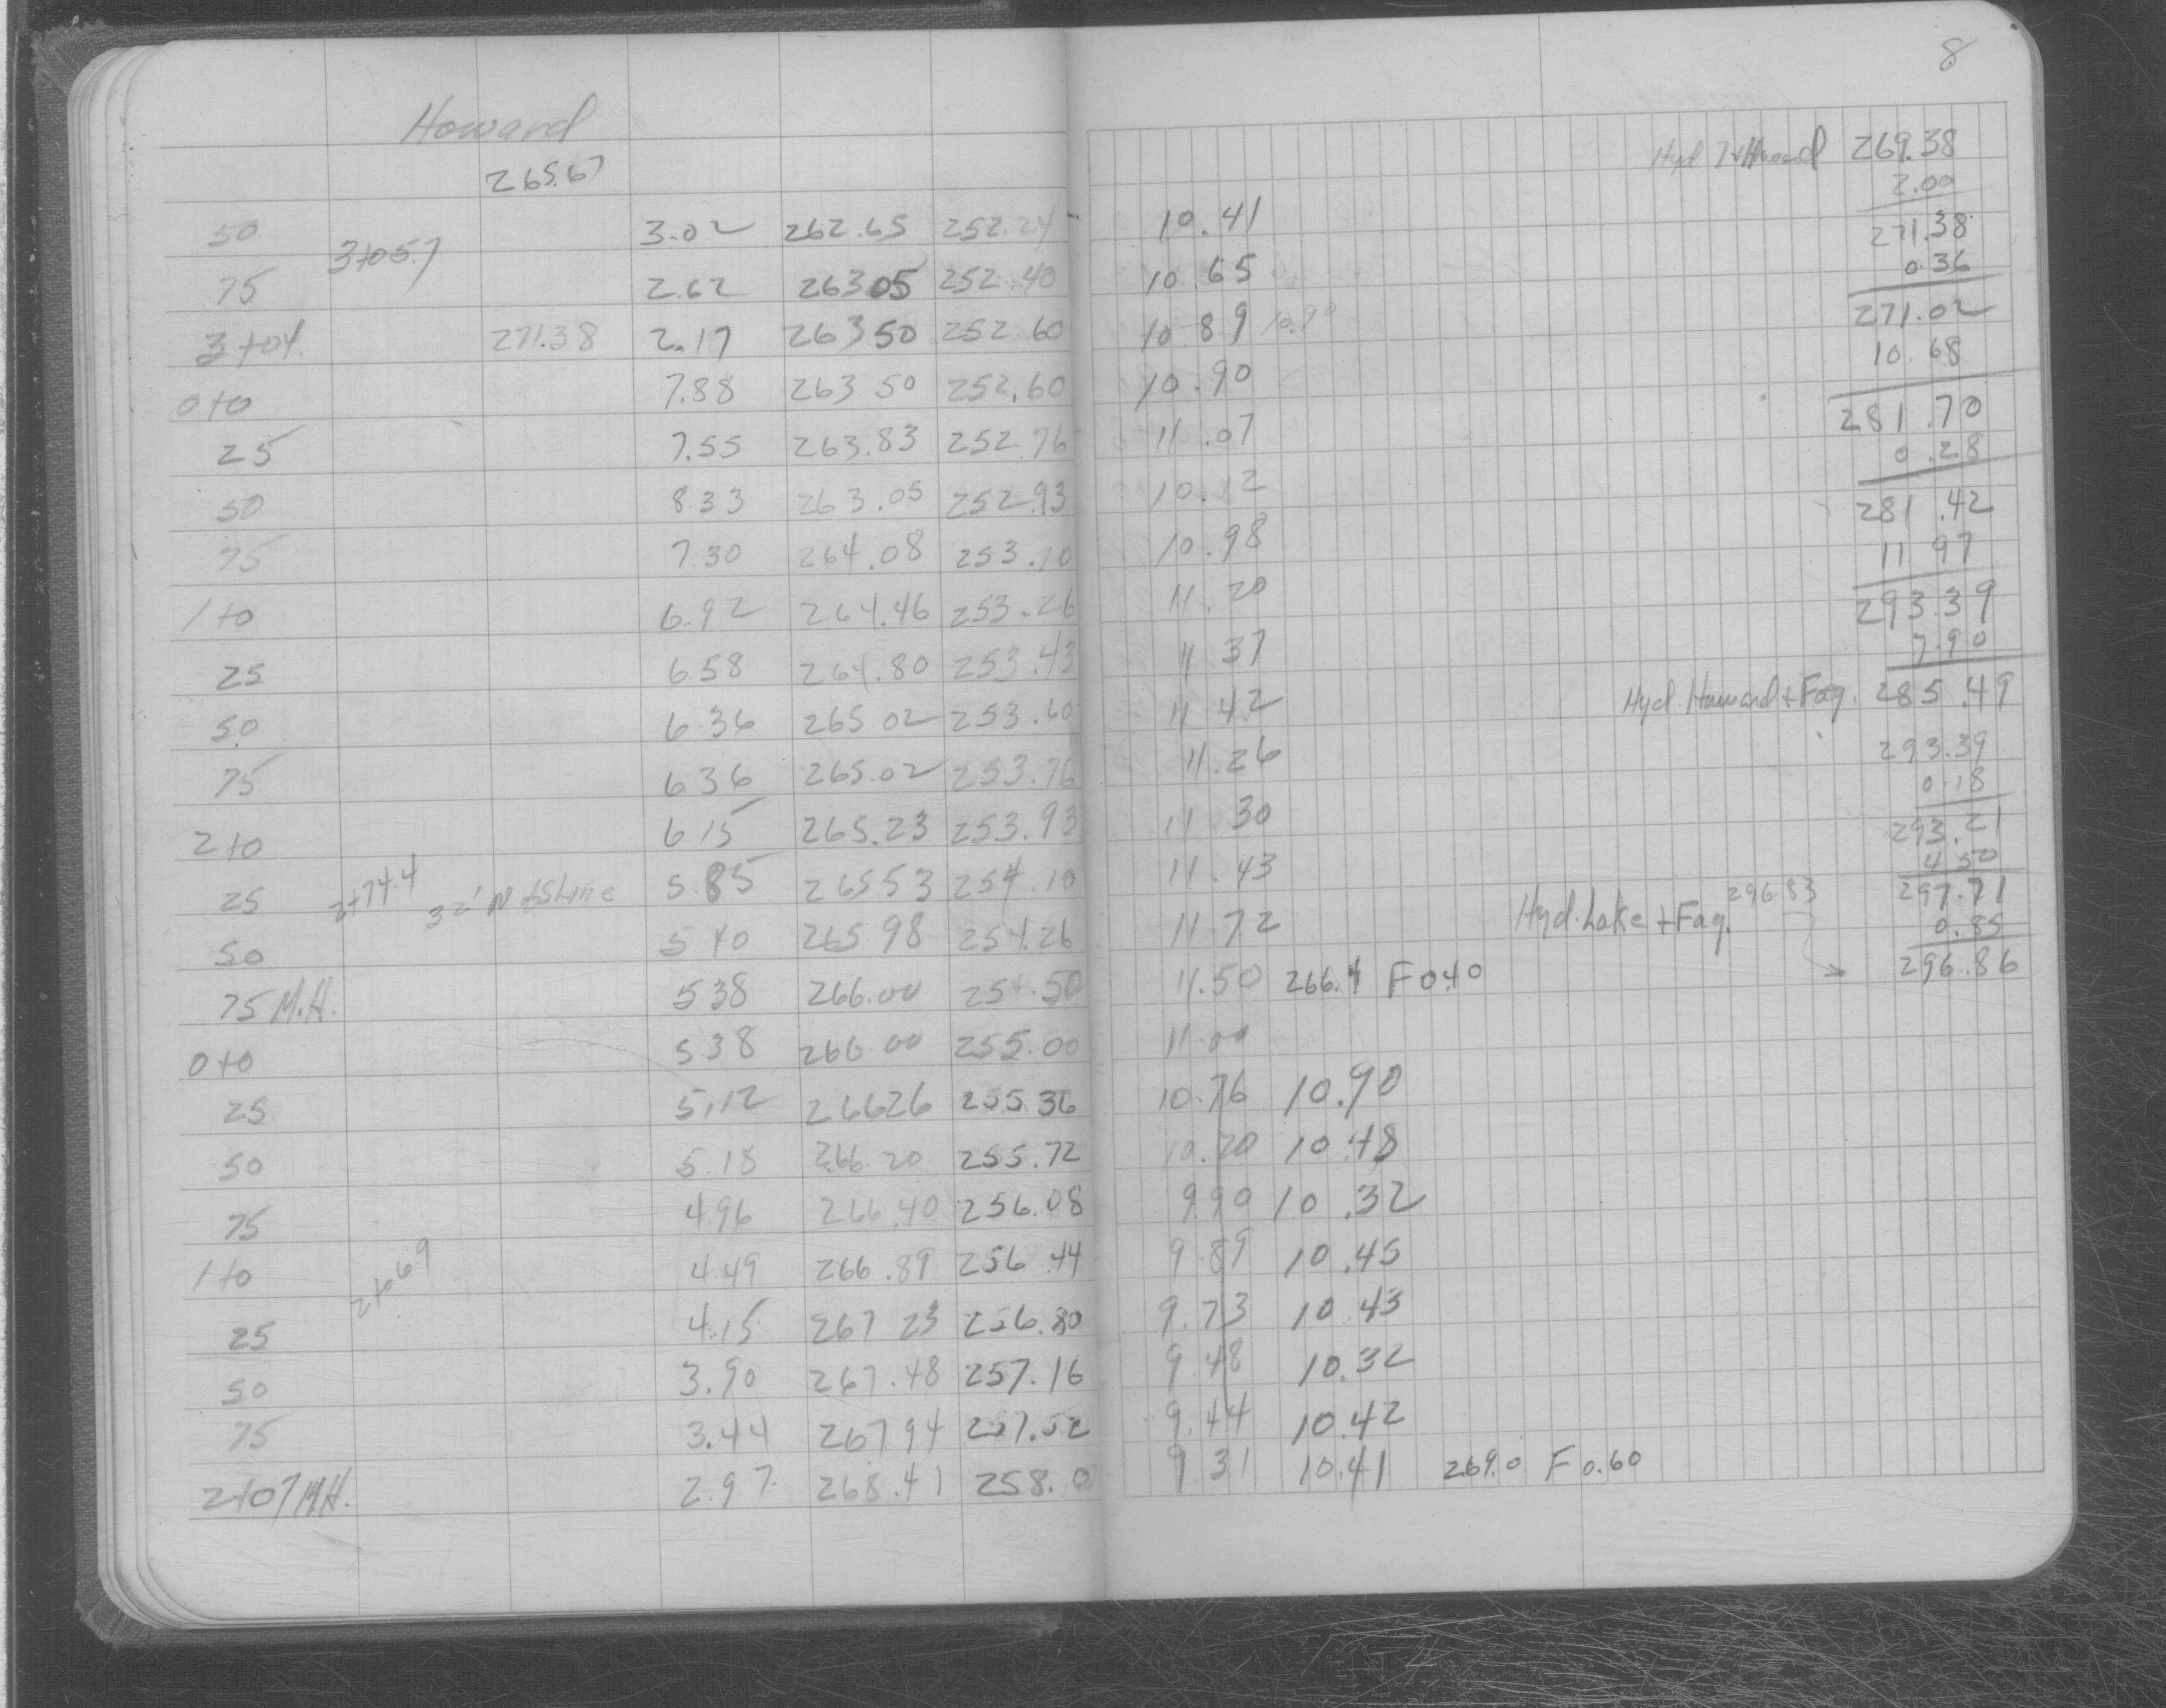 8
Howard
265.67
50 3+05.7 3.02 262.65 252.24 10.41
75 2.62 263 05 252.40 10 65
3+04. 271.38 2.17 263 50 252.60 10 89 10.90
0+0 7.88 263 50 252.60 10.90
25 7.55 263.83 252 76 11.07
50 8 33 263.05 252.93 10.12
75 7.30 264.08 253.10 10.98
1+0 6.92 264.46 253.26 11.20
25 6 58 264.80 253.43 11 37
50 6.36 265 02 253.60 11 42
75 6 36 265.02 253.76 11.26
2+0 6 15 265.23 253.93 11 30
25 2+74.4 32' N of S line 5.85 265 53 254.10 11.43
50 5 40 265 98 254.26 11 72
75 M.H. 5 38 266.00 254.50 11.50 266.4 F 0.40
0+0 5 38 266.00 255.00 11.00
25 5.12 266 26 255 36 10.76 10.90
50 5.18 266 20 255.72 10.20 10.48
75 4.96 266.40 256.08 9.90 10.32
1+0 2+06.9 4.49 266.89 256.44 9.89 10.45
25 4.15 267 23 256.80 9.73 10.43
50 3.90 267.48 257.16 9 48 10.32
75 3.44 267 94 257.52 9.44 10.42
2+07 M.H. 2.97 268.41 258.0 9 31 10.41 269.0 F 0.60
Hyd Howard 269.38
2.00
271.38
0.36
271.02
10.68
281.70
0.28
281.42
11 97
293.39
7.90
Hyd. Howard + Fag. 285.49
293.39
0.18
293.21
4.50
297.71
Hyd. Lake + Fag. 296.83
0.85
296.86